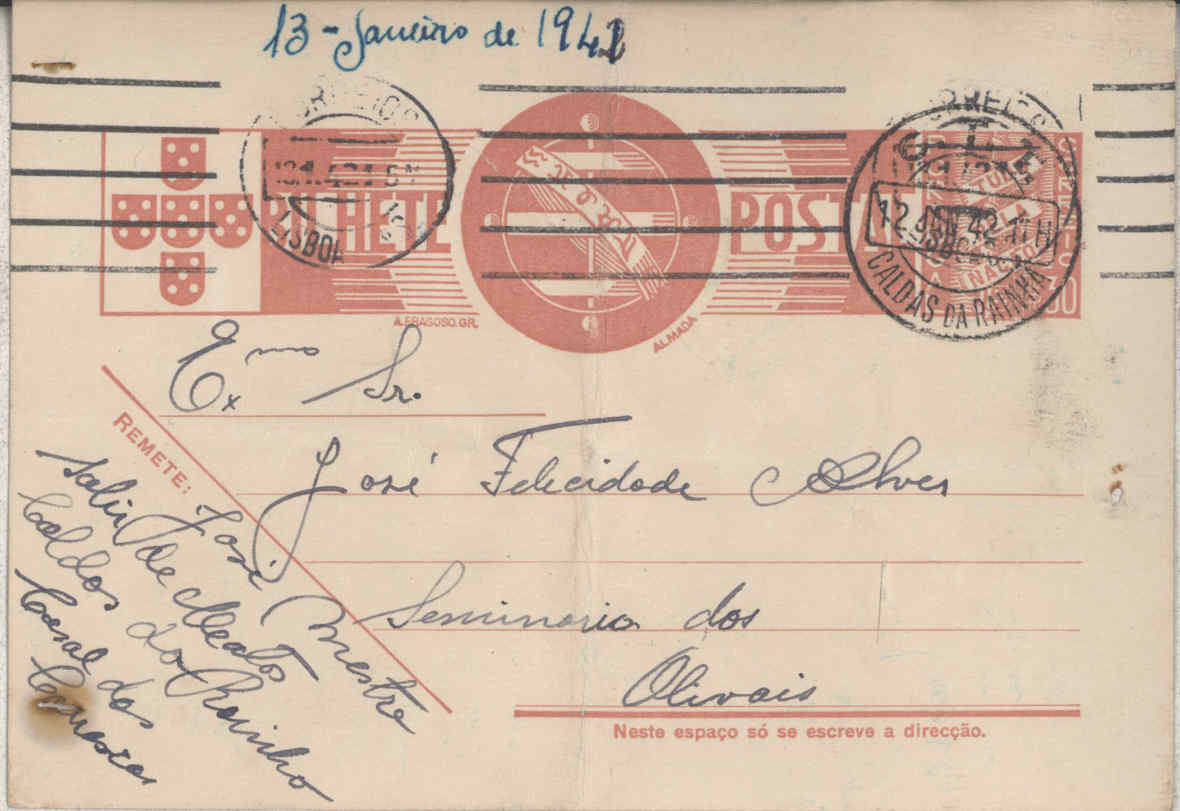 13-Janeiro de 1942
CORREIOS
LISBOA
BILHETE
POSTAL
CORREIOS
12.
42.-11H
CALDAS DA RAINHA
A.FRAGOSO.GR.
ALMADA
Exmo Sr.
José Felicidade Alves
Seminario dos
Olivais
Neste espaço só se escreve a direcção.
REMETE: José Mestre
Salir de Matos
Caldas da Rainha
Casal das